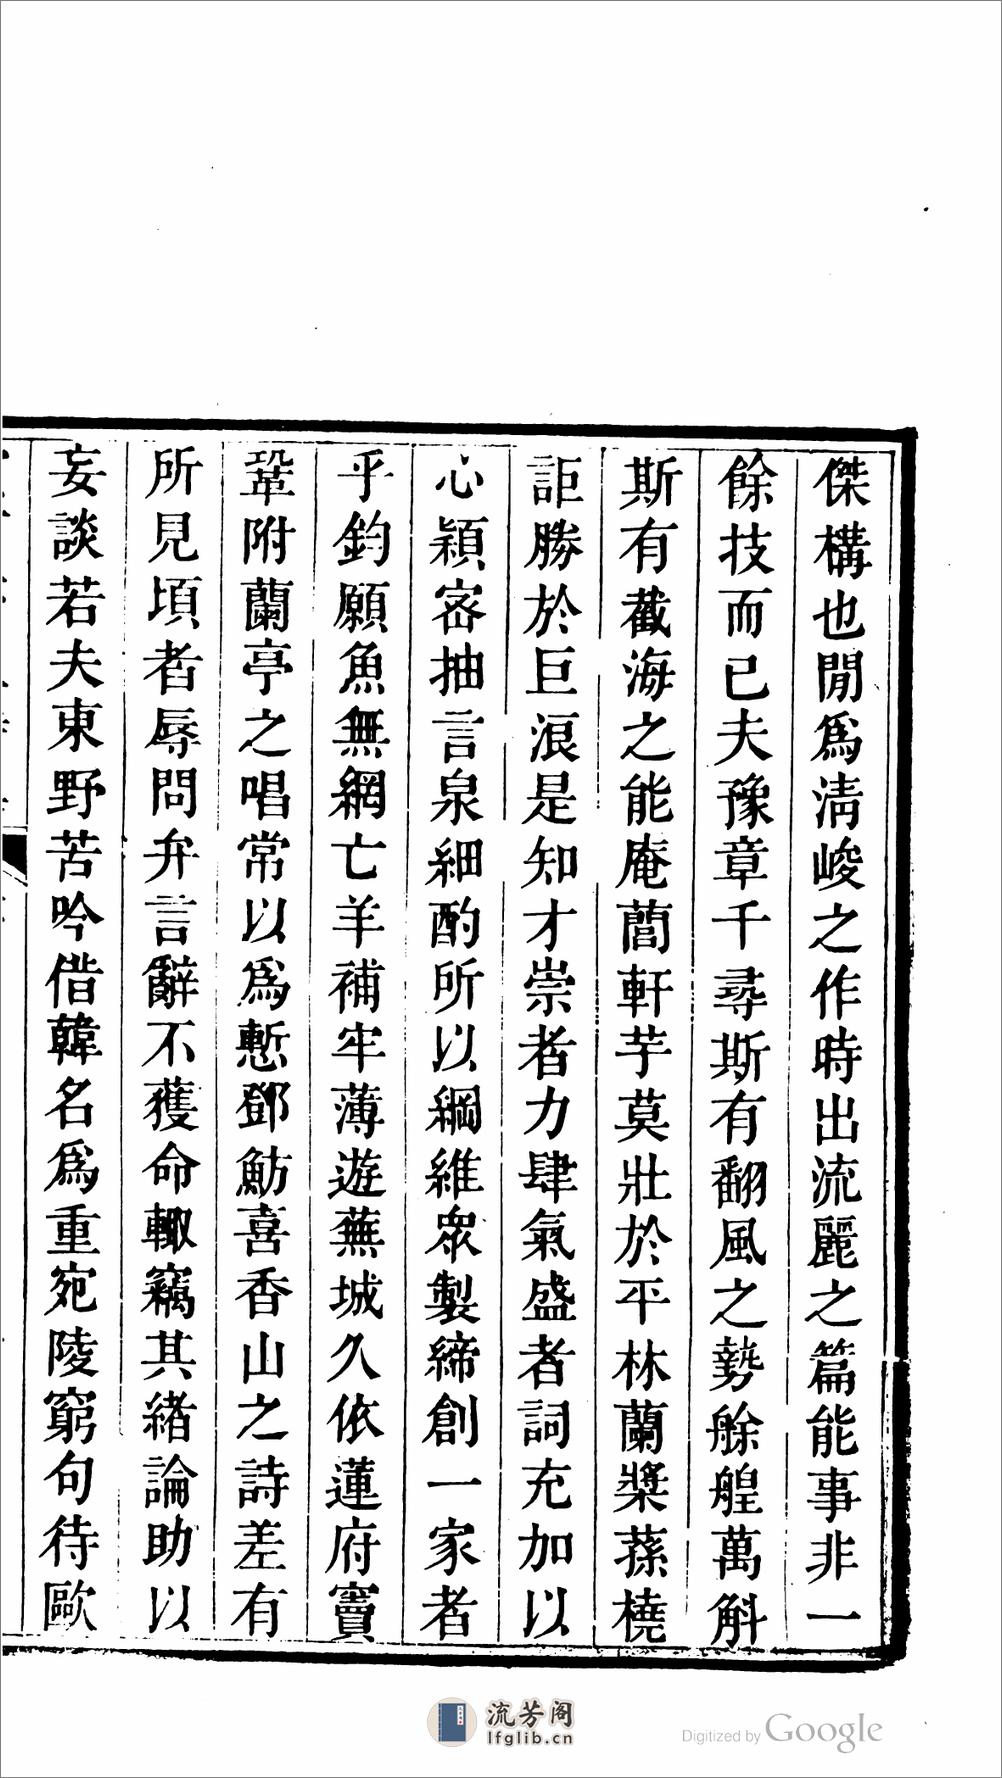 傑構也閒爲淸峻之作時出流麗之篇能事非一
餘技而已夫豫章千尋斯有翻風之勢艅艎萬斛
斯有截海之能庵藺軒芋莫壯於平林蘭槳蓀橈
詎勝於巨浪是知才崇者力肆氣盛者詞充加以
心穎密抽言泉細酌所以綱維眾製締創一家者
乎鈞願魚無網亡羊補牢薄遊蕪城久依蓮府竇
鞏附蘭亭之唱常以爲慙鄧魴喜香山之詩差有
所見頃者辱問弁言辭不獲命輙竊其緒論助以
妄談若夫東野苦吟偕韓名爲重宛陵窮句待歐
流芳阁
lfglib.cn
Digitized by Google